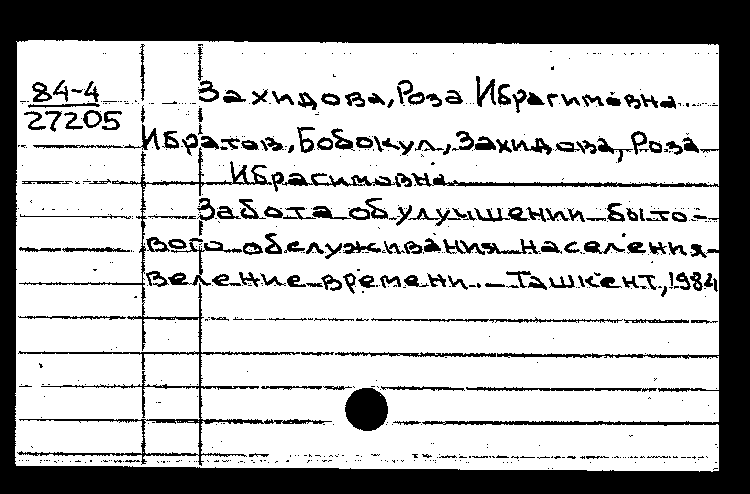 84-4
27205
Захидова, Роза Ибрагимовна.
Ибратов, Бобокул, Захидова, Роза
Ибрагимовна.
Забота об улучшении быто-
вого обслуживания населения-
веление времени. - Ташкент, 1984